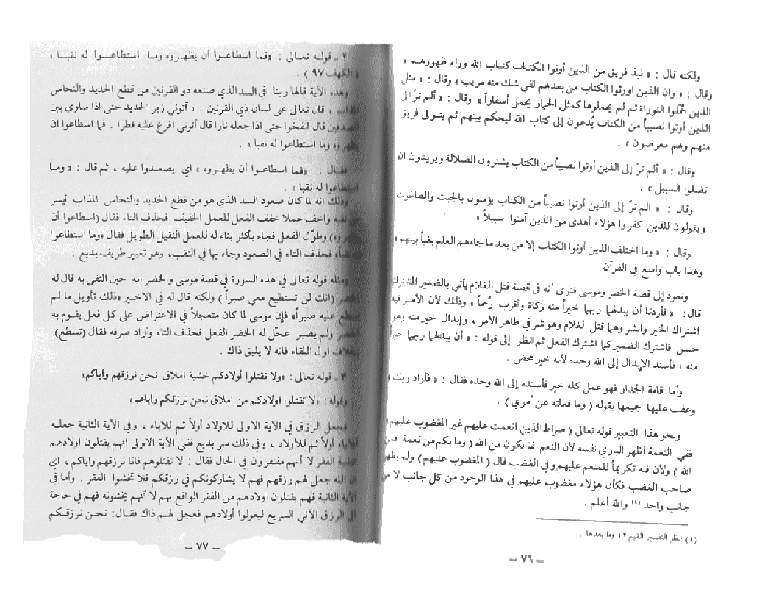 ولكنه قال : « نبذ فريق من الذين أوتوا الكتاب كتاب الله وراء ظهورهم »
وقال : « وان الذين اورثوا الكتاب من بعدهم لفي شك منه مريب » وقال : « مثل
الذين حملوا التوراة ثم لم يحملوها كمثل الحمار يحمل أسفاراً » وقال : « ألم تر الى
الذين أوتوا نصيباً من الكتاب يدعون إلى كتاب الله ليحكم بينهم ثم يتولى فريق
منهم وهم معرضون » .
وقال : « ألم تر إلى الذين أوتوا نصيباً من الكتاب يشترون الضلالة ويريدون ان
تضلوا السبيل » .
وقال : « الم تر إلى الذين أوتوا نصيباً من الكتاب يؤمنون بالجبت والطاغوت
ويقولون للذين كفروا هؤلاء أهدى من الذين آمنوا سبيلاً »
وقال : « وما اختلف الذين أوتوا الكتاب إلا من بعد ما جاءهم العلم بغياً بينهم »
وهذا باب واسع في القرآن
ونعود إلى قصة الخضر وموسى فنرى أنه في قصة قتل الغلام يأتي بالضمير المشترك
قال : « فأردنا أن يبدلهما ربهما خيراً منه زكاة وأقرب رحماً » وذلك لأن الأمر فيه
اشتراك الخير والشر وهما قتل الغلام وهو شر في ظاهر الأمر ، وإبدال خير منه وهو
حسن فاشترك الضمير كما اشترك الفعل ثم انظر إلى قوله : « أن يبدلهما ربهما خيراً
منه » فأسند الإبدال إلى الله وحده لأنه خير محض .
وأما قامة الجدار فهو عمل كله خير فأسنده إلى الله وحده فقال : « فأراد ربك »
وعقب عليها جميعها بقوله ( وما فعلته عن أمري ) .
ونحو هذا التعبير قوله تعالى ( صراط الذين انعمت عليهم غير المغضوب عليهم )
ففي النعمة أظهر الباري نفسه لأن النعم انما تكون من الله ( وما بكم من نعمة فمن
الله ) ولأن فيه تكريماً للمنعم عليهم وفي الغضب قال ( المغضوب عليهم ) ولم يظهر
صاحب الغضب فكأن هؤلاء مغضوب عليهم في هذا الوجود من كل جانب لا من
جانب واحد (١) والله أعلم .
(١) انظر التفسير القيم ١٢ وما بعدها .
— ٧٦ —
٢ ـ قوله تعالى : « فما اسطاعوا أن يظهروه وما استطاعوا له نقبا »
( الكهف ٩٧ ) .
وهذه الآية قالها ربنا في السد الذي صنعه ذو القرنين من قطع الحديد والنحاس
قال تعالى على لسان ذي القرنين : « آتوني زبر الحديد حتى اذا ساوى بين
الصدفين قال انفخوا حتى اذا جعله نارا قال أتوني افرغ عليه قطرا . فما اسطاعوا ان
يظهروه وما استطاعوا له نقبا » .
فقال : « فما اسطاعوا أن يظهروه » اي يصعدوا عليه ، ثم قال : « وما
استطاعوا له نقبا » .
وذلك انه لما كان صعود السد الذي هو من قطع الحديد والنحاس المذاب أيسر
من نقبه واخف عملا خفف الفعل للعمل الخفيف فحذف التاء فقال (اسطاعوا أن
يظهروه) وطول الفعل فجاء بأكثر بناء له للعمل الثقيل الطويل فقال «وما استطاعوا
له نقبا» فحذف التاء في الصعود وجاء بها في النقب، وهو تعبير ظريف بديع .
ومثله قوله تعالى في هذه السورة في قصة موسى والخضر انه حين التقى به قال له
الخضر (انك لن تستطيع معي صبراً ) ولكنه قال له في الاخير «ذلك تأويل ما لم
تسطع عليه صبراً» فإن موسى لما كان متعجلاً في الاعتراض على كل فعل يقوم به
الخضر ولم يصبر عجل له الخضر الفعل فحذف التاء وأراد صرفه فقال (تسطع)
بخلاف أول اللقاء فانه لا يليق ذاك .
٣ ـ قوله تعالى : «ولا تقتلوا أولادكم خشية املاق نحن نرزقهم واياكم»
وقوله: «لا تقتلوا اولادكم من املاق نحن نرزقكم واياهم»
فجعل الرزق في الآية الاولى للاولاد أولاً ثم للآباء ، وفي الآية الثانية جعله
للآباء أولاً ثم للأولاد ، وفي ذلك سر بديع ففي الآية الاولى انهم يقتلون اولادهم
خشية الفقر لا أنهم مفتقرون في الحال فقال : لا تقتلوهم فانا نرزقهم واياكم ، اي
ان الله جعل لهم رزقهم فهم لا يشاركونكم في رزقكم فلا تخشوا الفقر . وأما في
الآية الثانية فهم يقتلون اولادهم من الفقر الواقع بهم لا أنهم يخشونه فهم في حاجة
الى الرزق الآني السريع ليعولوا أولادهم فعجل لهم ذاك فقال: نحن نرزقكم
— ٧٧ —